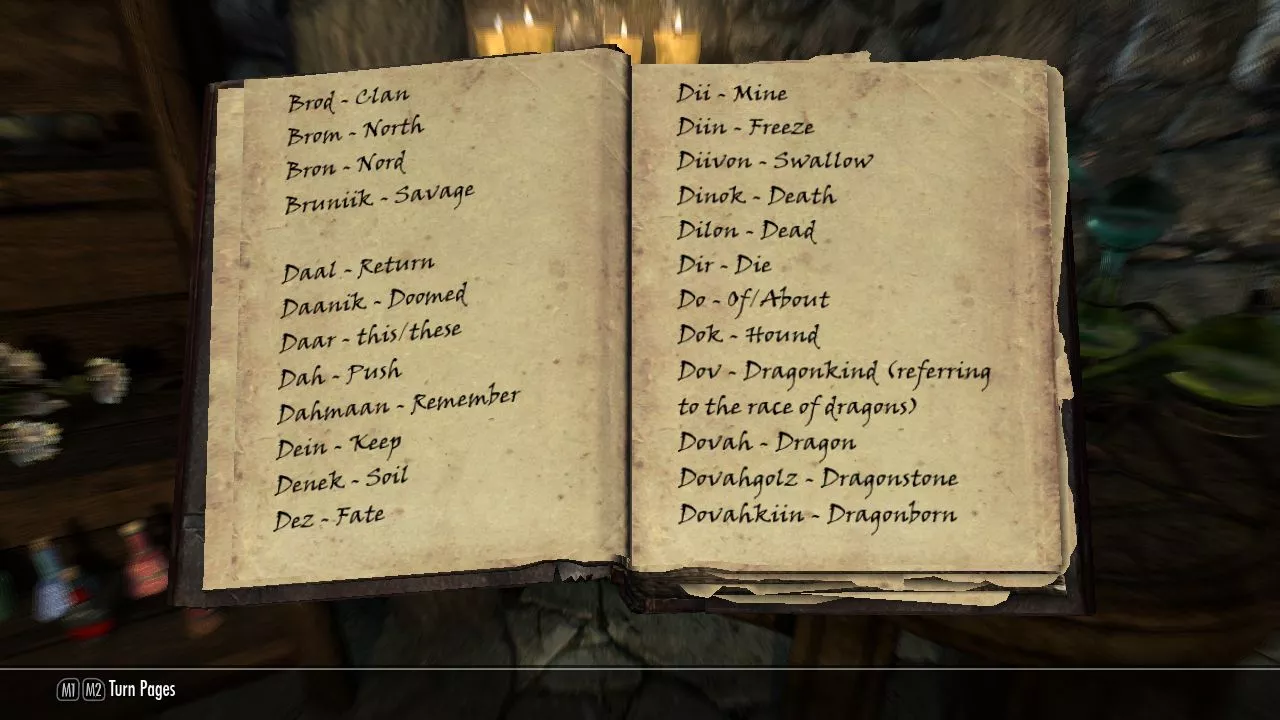 Brod - Clan
Brom - North
Bron - Nord
Bruniik - Savage
Daal - Return
Daanik - Doomed
Daar - this/these
Dah - Push
Dahmaan - Remember
Dein - Keep
Denek - Soil
Dez - Fate
Dii - Mine
Diin - Freeze
Diivon - Swallow
Dinok - Death
Dilon - Dead
Dir - Die
Do - Of/About
Dok - Hound
Dov - Dragonkind (referring
to the race of dragons)
Dovah - Dragon
Dovahgolz - Dragonstone
Dovahkiin - Dragonborn
M1 M2 Turn Pages